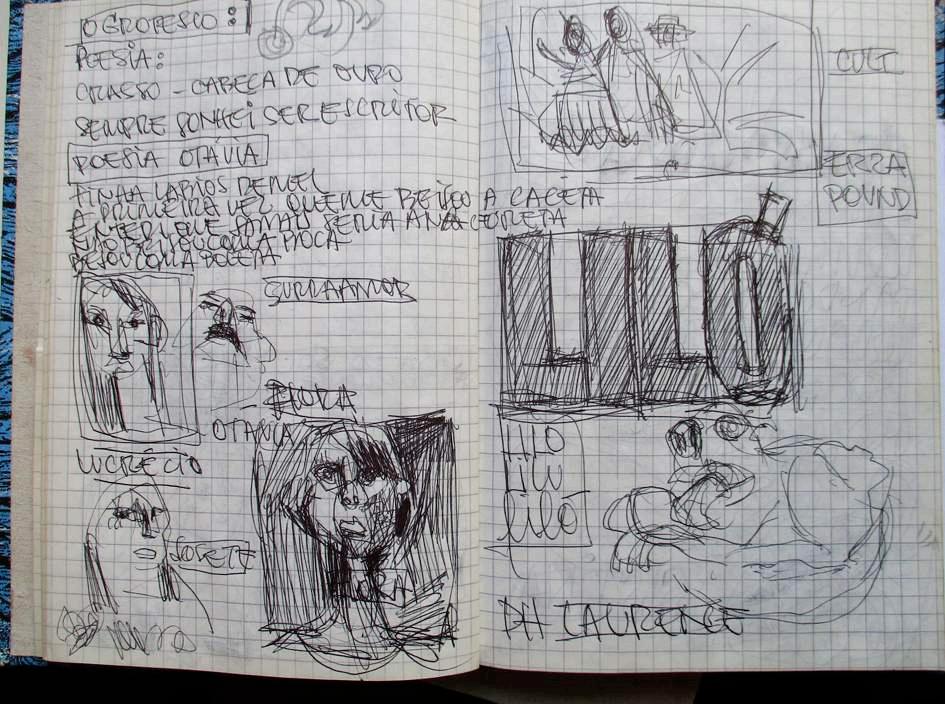 O GROTESCO:
POESIA:
CRASSO - CABEÇA DE OURO
SEMPRE SONHEI SER ESCRITOR
POESIA OTÁVIA
TINHA LÁBIOS DE MEL
A PRIMEIRA VEZ QUE ME BEIJOU A CACETA
ENTENDI QUE JAMAIS SERIA ANACORETA
COM A
BEIJOU COM A BOCETA
SURRAAMOR
FLORA
OTÁVIA
LUCRÉCIO
CULT
EZRA
POUND
LILÓ
LILO
LILU
LILÓ
DH LAURENCE